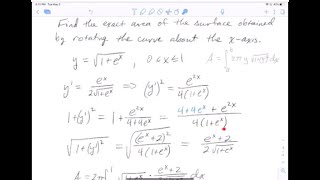 Find the exact area of the surface obtained
by rotating the curve about the x-axis.
y = √(1+e^x) , 0 ≤ x ≤ 1
y' = e^x / (2√(1+e^x)) ⇒ (y')² = e^(2x) / (4(1+e^x))
1+(y')² = 1 + e^(2x) / (4+4e^x) = (4+4e^x+e^(2x)) / (4(1+e^x))
√(1+(y')²) = √((e^x+2)² / (4(1+e^x))) = (e^x+2) / (2√(1+e^x))